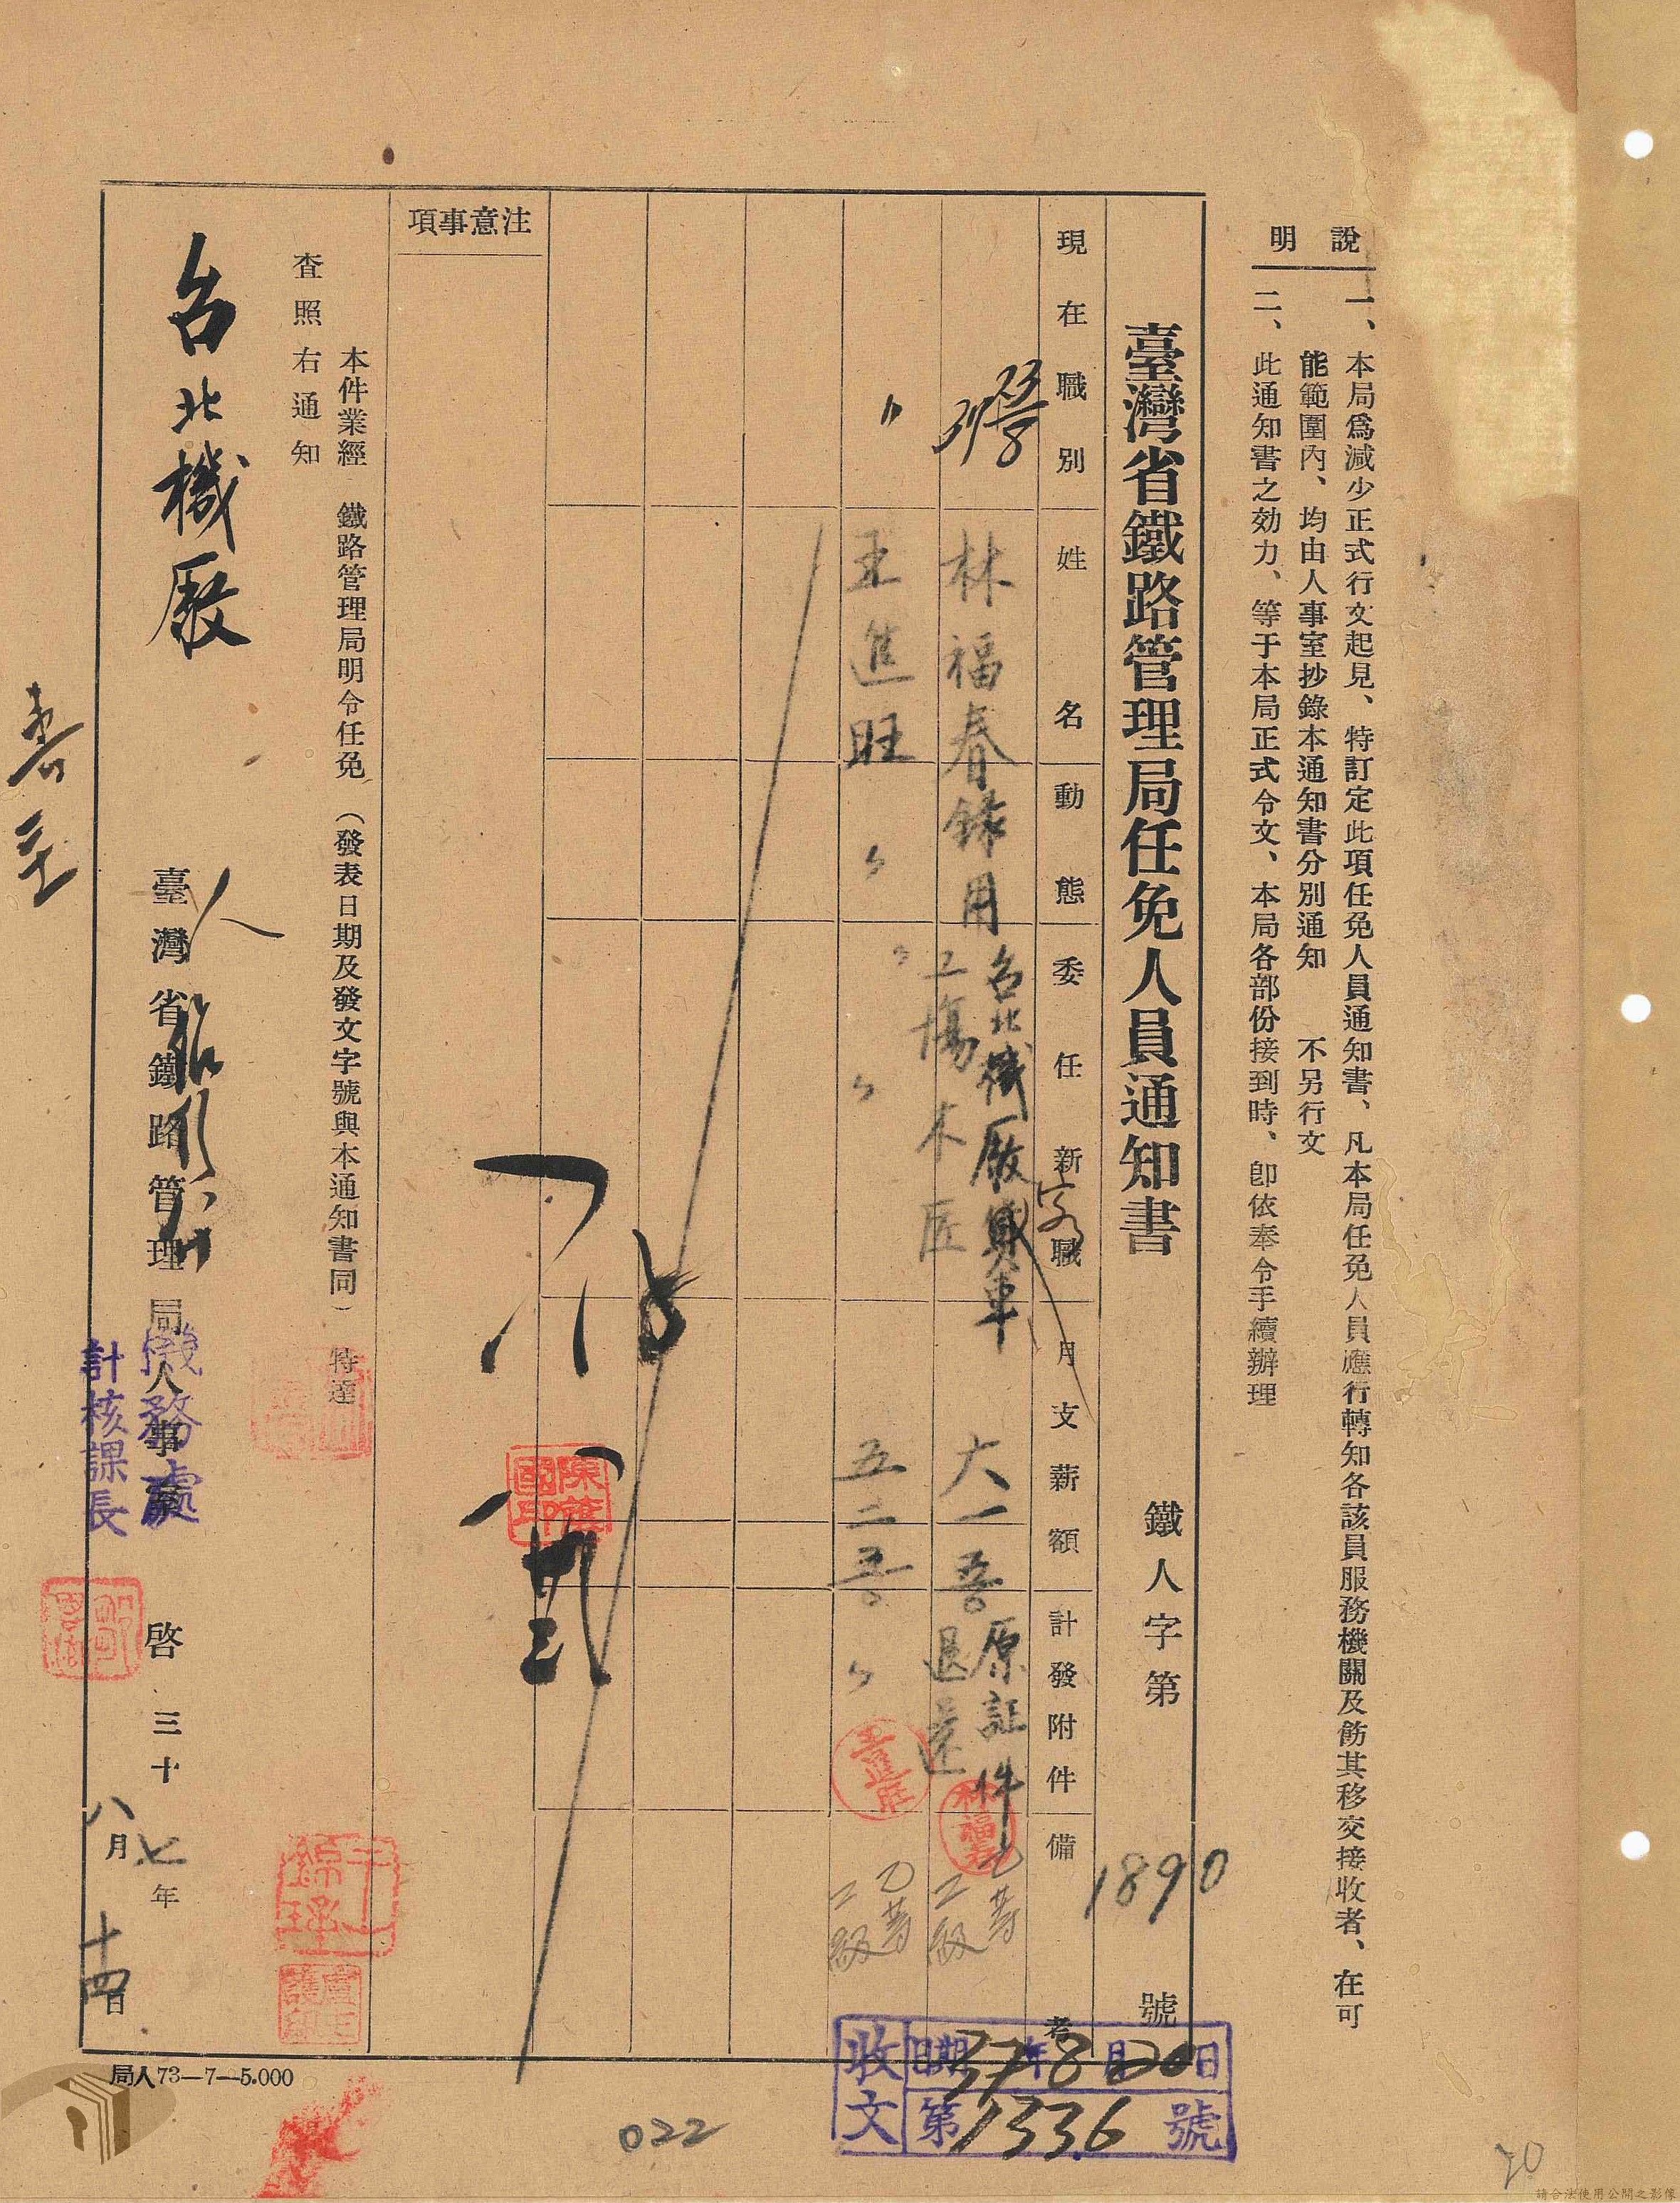 說明
一、本局爲減少正式行文起見、特訂定此項任免人員通知書、凡本局任免人員應行轉知各該員服務機關及飭其移交接收者、在可
能範圍內、均由人事室抄錄本通知書分別通知　不另行文
二、此通知書之効力、等于本局正式令文、本局各部份接到時、卽依奉令手續辦理
臺灣省鐵路管理局任免人員通知書
鐵人字第1890號
現在職別
姓名
動態
委任新職
月支薪額
計發附件
備考
林福春
錄用
台北機廠貨車
工場木匠
原証件
退還
乙等
工級
〃
王進旺
〃
〃
〃
〃
乙等
工級
注意事項
本件業經　鐵路管理局明令任免（發表日期及發文字號與本通知書同）特達
查照右通知
台北機廠
臺灣省鐵路管理局人事室　啓　三十七年
八月十四日
機務處
計核課長
收文
日期 37年8月20日
第1336號
局人73—7—5.000
022
20
請合法使用公開之影像